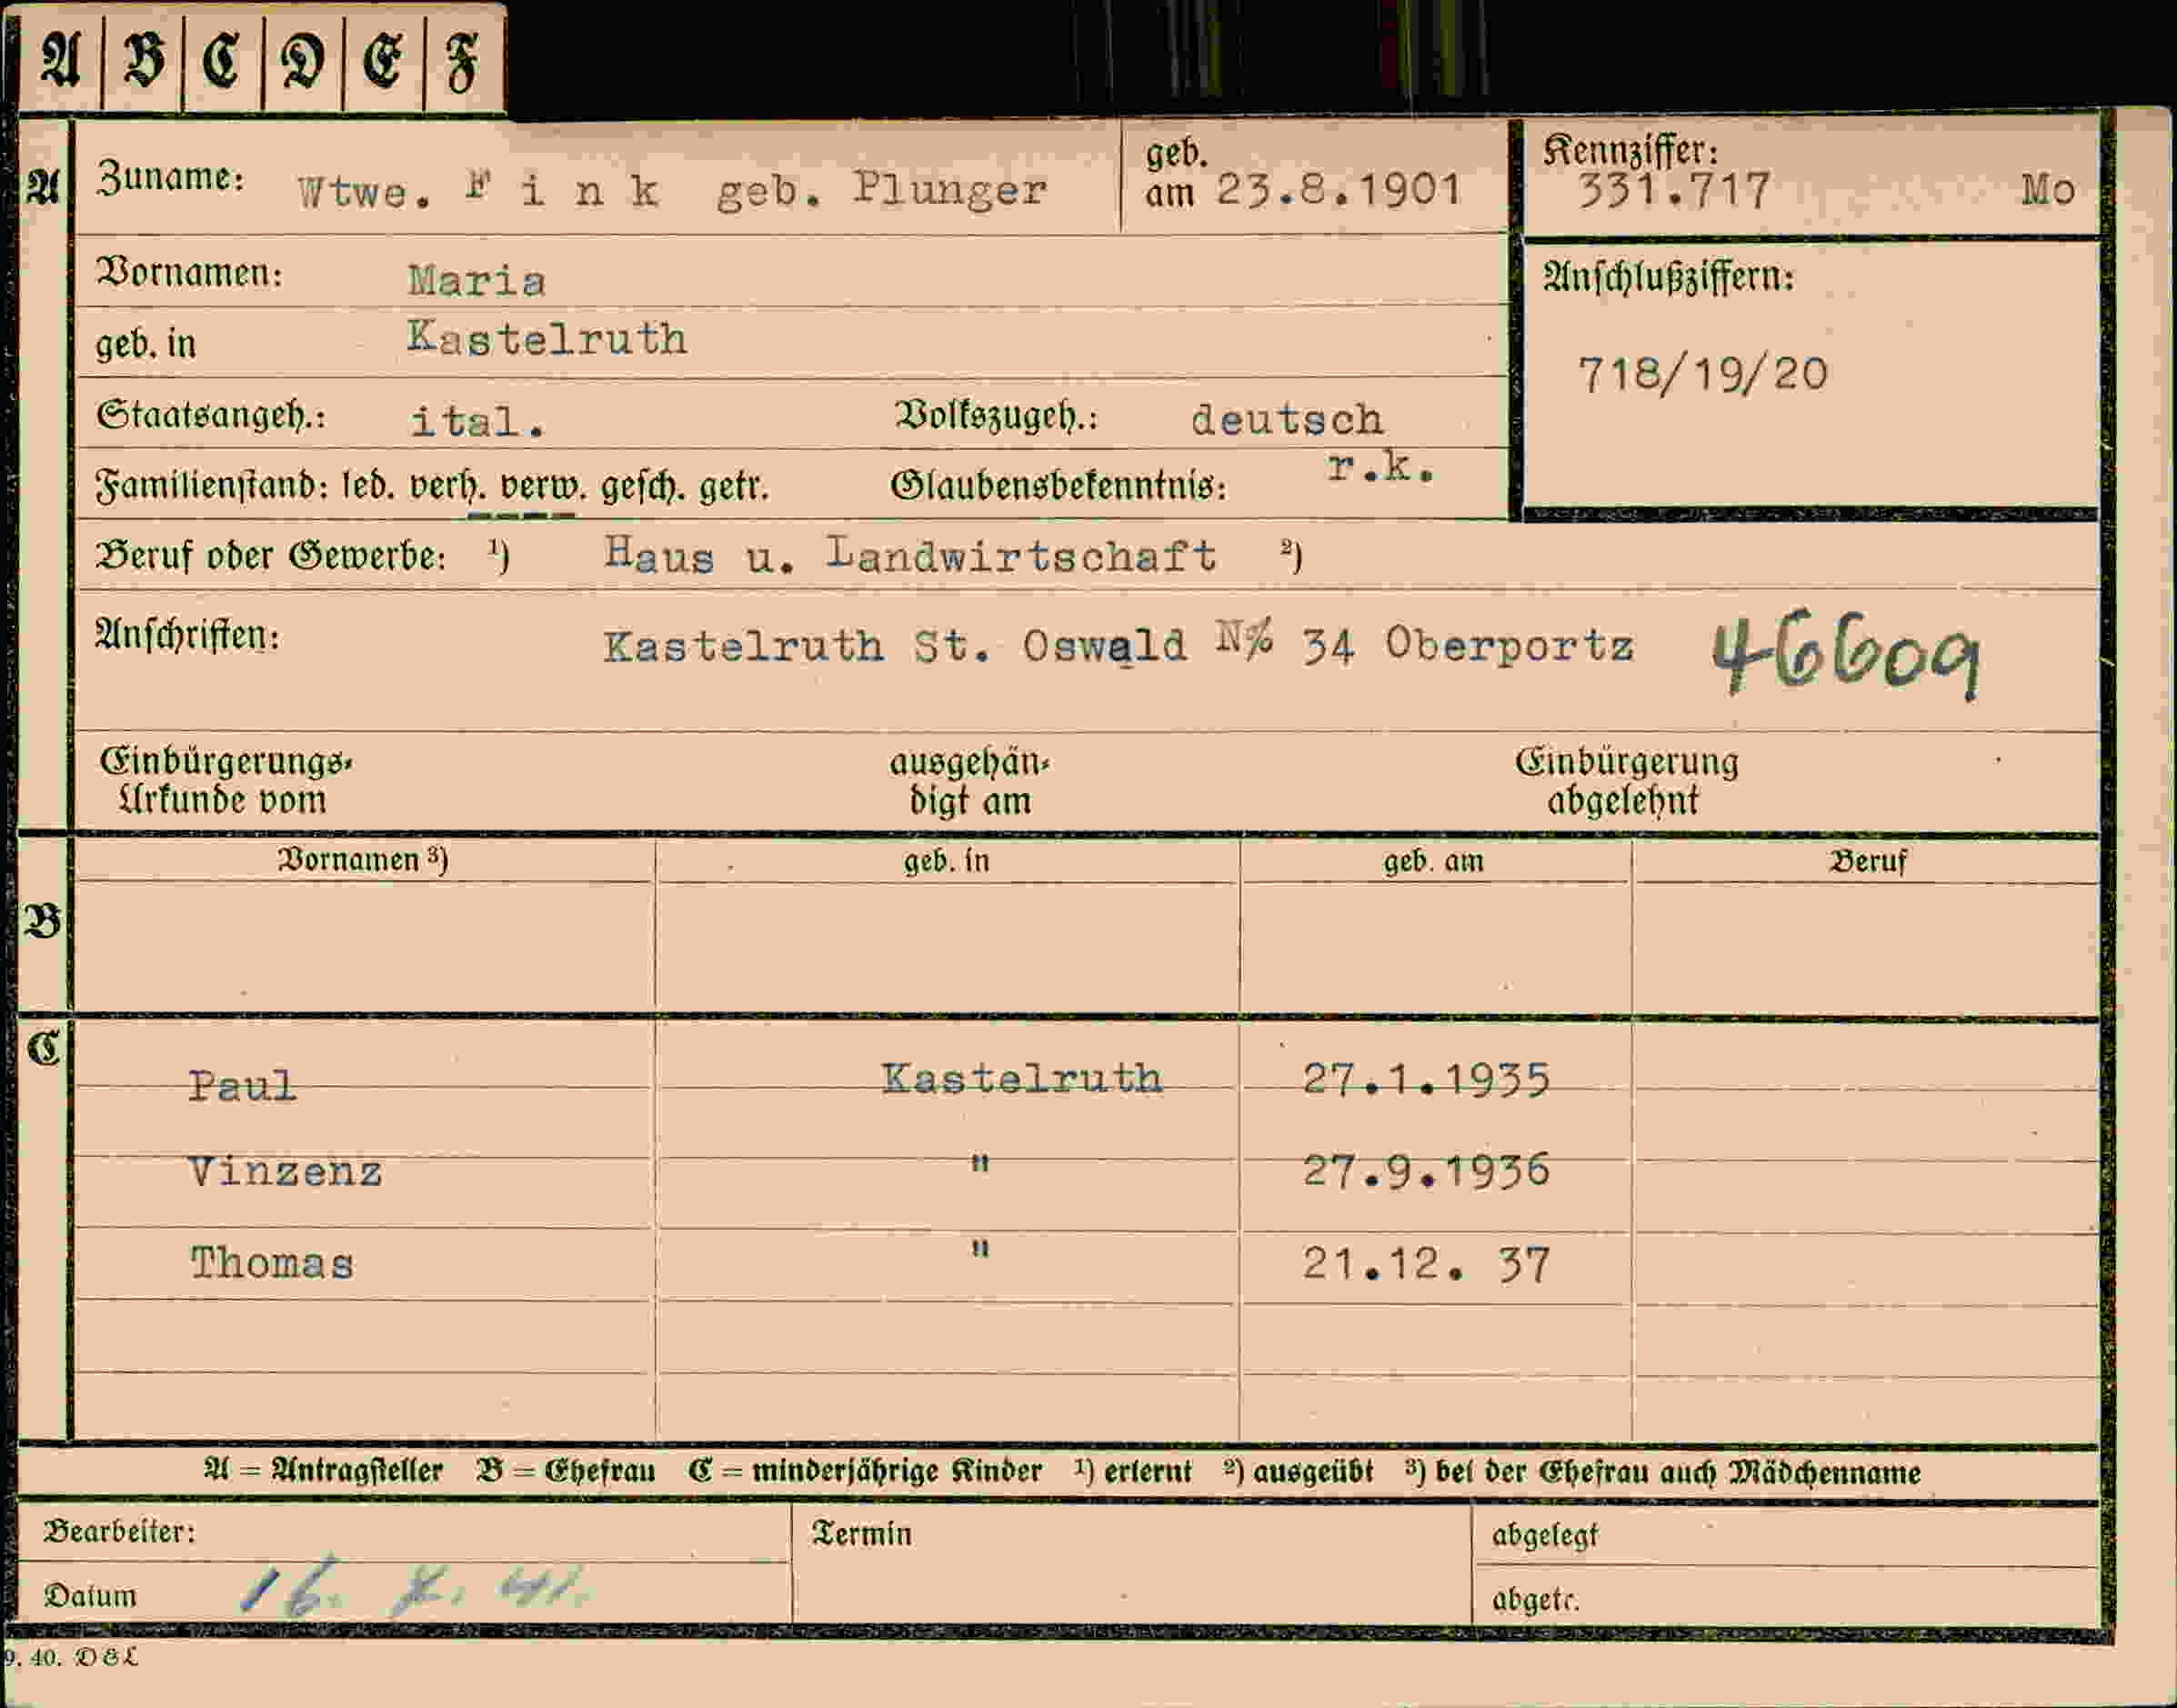 A B C D E F
A Zuname: Wtwe. F i n k geb. Plunger geb. am 23.8.1901 Kennziffer: 331.717 Mo
Vornamen: Maria
Anschlußziffern:
geb. in Kastelruth
718/19/20
Staatsangeh.: ital. Volkszugeh.: deutsch
Familienstand: led. verh. verw. gesch. getr. Glaubensbekenntnis: r.k.
Beruf oder Gewerbe: ¹) Haus u. Landwirtschaft ²)
Anschriften: Kastelruth St. Oswald N% 34 Oberportz 46609
Einbürgerungs- ausgehän- Einbürgerung
Urkunde vom digt am abgelehnt
Vornamen ³) geb. in geb. am Beruf
B
C
Paul Kastelruth 27.1.1935
Vinzenz " 27.9.1936
Thomas " 21.12. 37
A = Antragsteller B = Ehefrau C = minderjährige Kinder ¹) erlernt ²) ausgeübt ³) bei der Ehefrau auch Mädchenname
Bearbeiter: Termin abgelegt
Datum 16. 41. abgetr.
9. 40. DEL